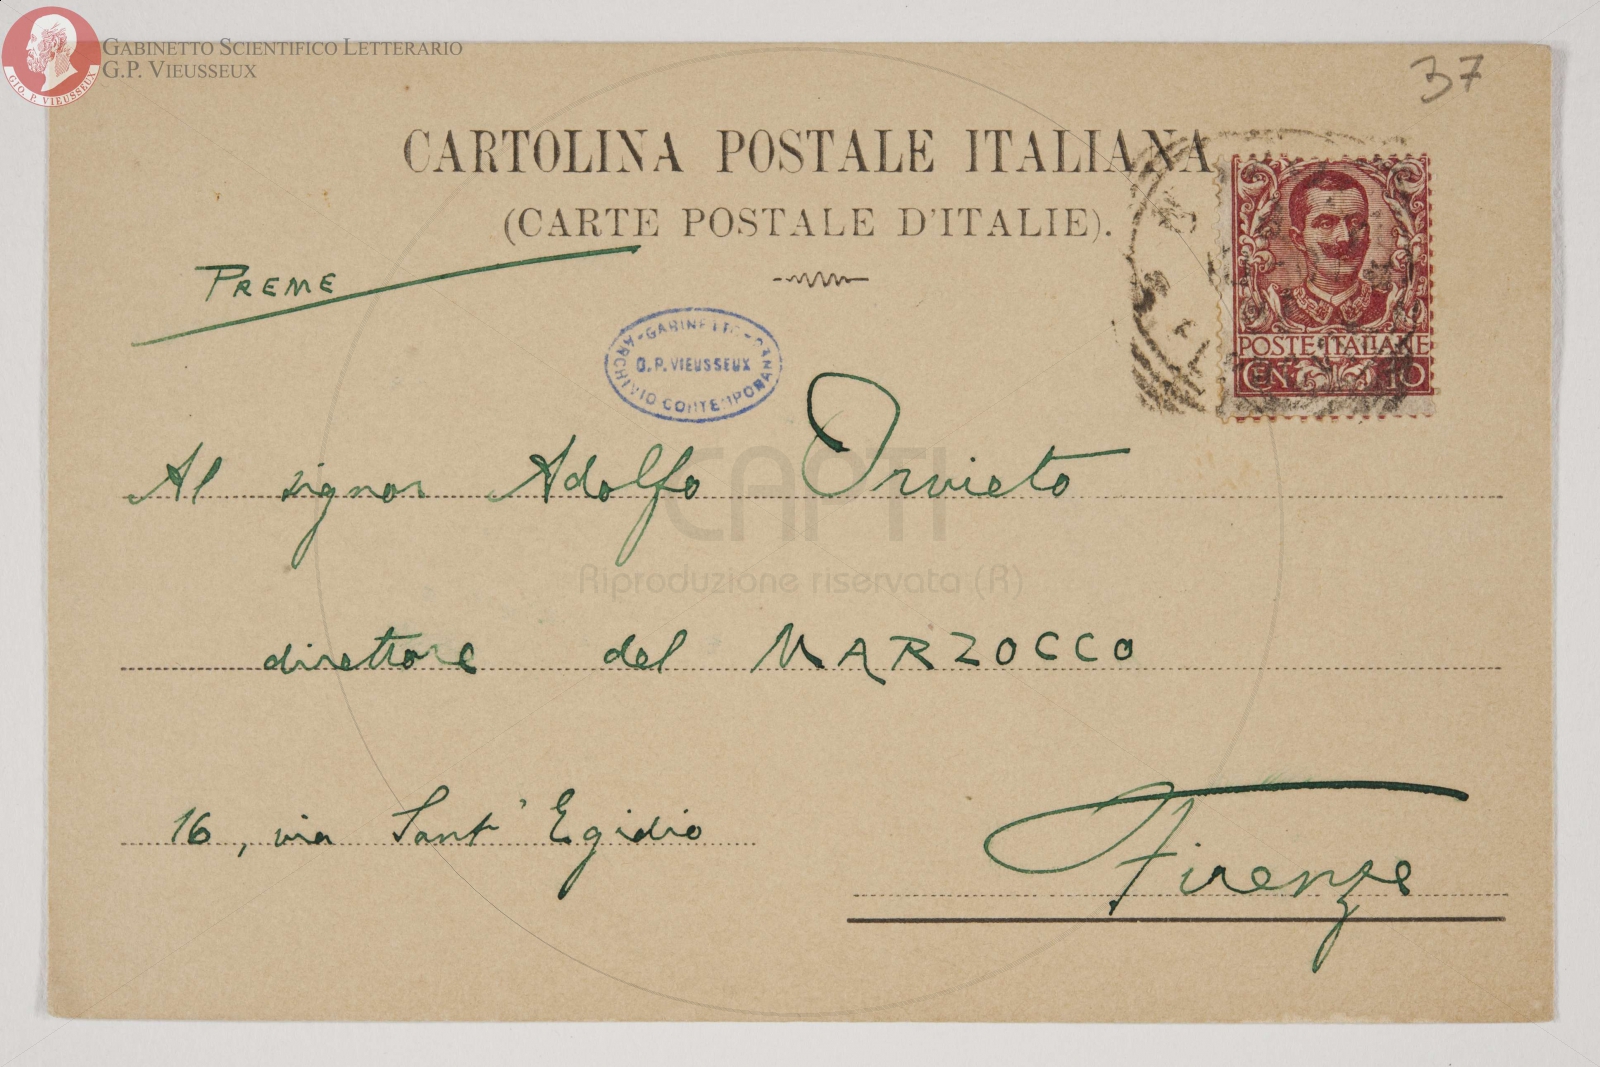 GABINETTO SCIENTIFICO LETTERARIO
G.P. VIEUSSEUX
GIO. P. VIEUSSEUX
37
CARTOLINA POSTALE ITALIANA
(CARTE POSTALE D'ITALIE).
PREME
GABINETTO
G. P. VIEUSSEUX
ARCHIVIO CONTEMPORANEO
POSTE ITALIANE
CEN. 10
Al signor Adolfo Orvieto
CAPTI
Riproduzione riservata (R)
direttore del MARZOCCO
16, via Sant' Egidio
Firenze